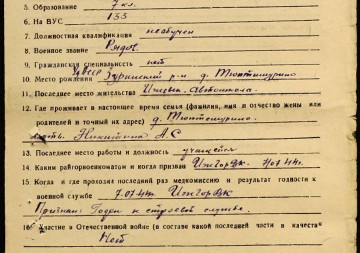 5. Образование 7 кл.
6. На ВУС 133
7. Должностная квалификация необучен
8. Военное звание Рядов
9. Гражданская специальность нет
10. Место рождения Зуринский р-н д.
11. Последнее место жительства Ижевск,
12. Где проживает в настоящее время семья (фамилия, имя и отчество жены или
родителей и точный их адрес) д.
мать: Никитина А С
13. Последнее место работы и должность учащейся
14. Каким райгорвоенкоматом и когда призван ИжГорВК
15. Когда и где проходил последний раз медкомиссию и результат годности к
военной службе 7.07.44г. ИжГорВК
Признан: Годен к строевой службе.
16. Участие в Отечественной войне (в составе какой последней части в качестве
Нет